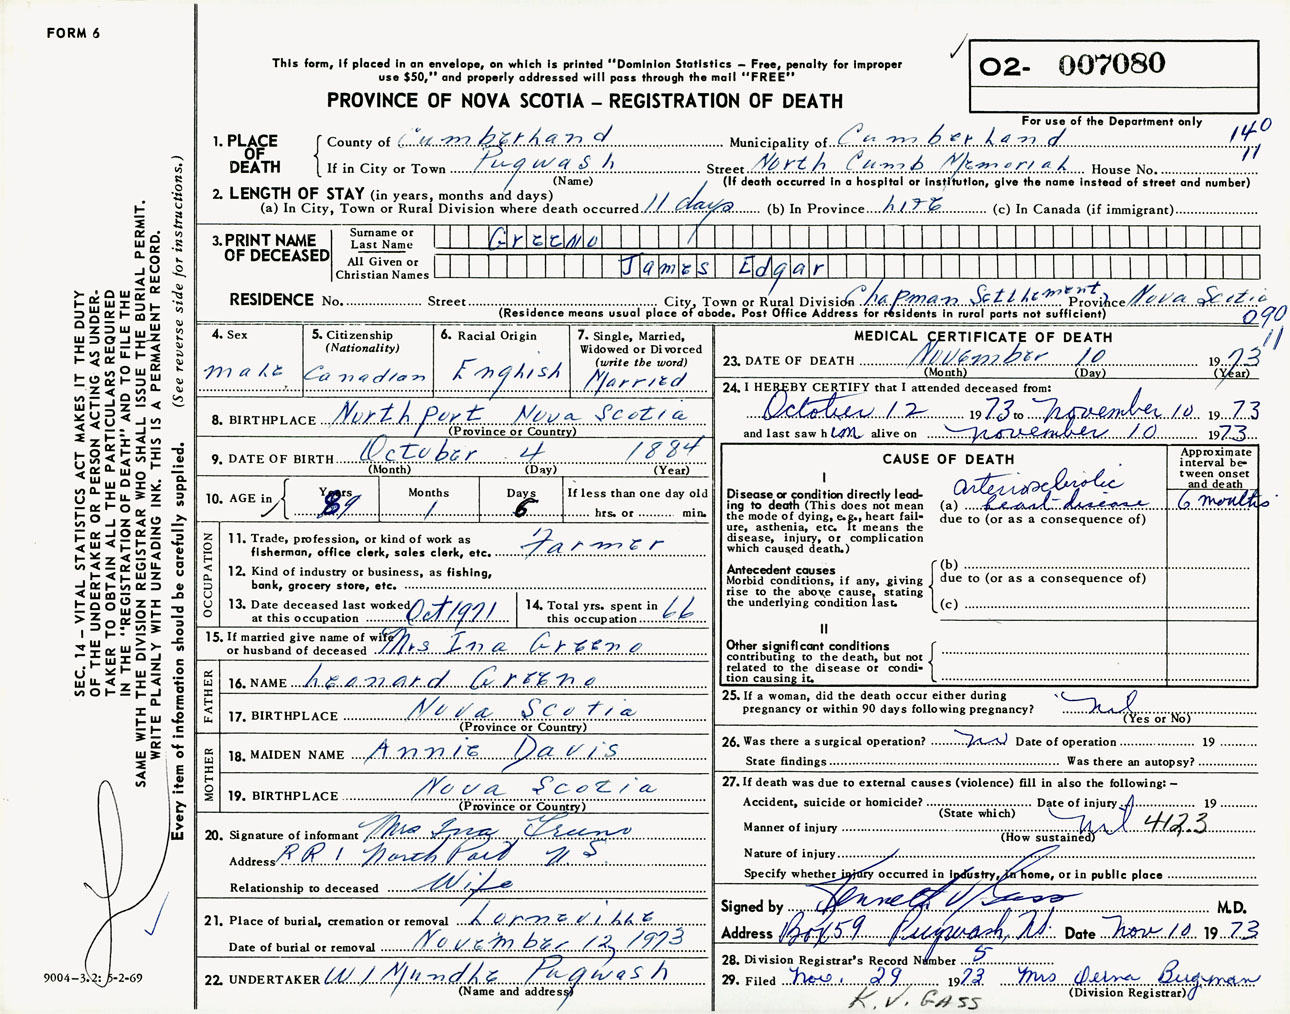 FORM 6
This form, if placed in an envelope, on which is printed "Dominion Statistics – Free, penalty for improper
use $50," and properly addressed will pass through the mail "FREE"
PROVINCE OF NOVA SCOTIA – REGISTRATION OF DEATH
02- 007080
For use of the Department only
140
11
1. PLACE OF DEATH
County of Cumberland Municipality of Cumberland
If in City or Town Pugwash Street North Cumb Memorial House No.
(Name) (If death occurred in a hospital or institution, give the name instead of street and number)
2. LENGTH OF STAY (in years, months and days)
(a) In City, Town or Rural Division where death occurred 11 days (b) In Province life (c) In Canada (if immigrant)
3. PRINT NAME OF DECEASED
Surname or Last Name Greeno
All Given or Christian Names James Edgar
RESIDENCE No. Street City, Town or Rural Division Chapman Settlement Province Nova Scotia
(Residence means usual place of abode. Post Office Address for residents in rural parts not sufficient)
090
11
4. Sex
male
5. Citizenship
(Nationality)
Canadian
6. Racial Origin
English
7. Single, Married,
Widowed or Divorced
(write the word)
Married
8. BIRTHPLACE Northport Nova Scotia
(Province or Country)
9. DATE OF BIRTH October 4 1884
(Month) (Day) (Year)
10. AGE in
Years 89
Months 1
Days 6
If less than one day old
hrs. or min.
OCCUPATION
11. Trade, profession, or kind of work as
fisherman, office clerk, sales clerk, etc. Farmer
12. Kind of industry or business, as fishing,
bank, grocery store, etc.
13. Date deceased last worked
at this occupation Oct 1971
14. Total yrs. spent in
this occupation 66
15. If married give name of wife
or husband of deceased Mrs Ina Greeno
FATHER
16. NAME Leonard Greeno
17. BIRTHPLACE Nova Scotia
(Province or Country)
MOTHER
18. MAIDEN NAME Annie Davis
19. BIRTHPLACE Nova Scotia
(Province or Country)
20. Signature of informant Mrs Ina Greeno
Address RR 1 North Port N S
Relationship to deceased Wife
21. Place of burial, cremation or removal Lorneville
Date of burial or removal November 12, 1973
22. UNDERTAKER Pugwash
(Name and address)
MEDICAL CERTIFICATE OF DEATH
23. DATE OF DEATH November 10 1973
(Month) (Day) (Year)
24. I HEREBY CERTIFY that I attended deceased from:
October 12 1973 to November 10 1973
and last saw him alive on November 10 1973
CAUSE OF DEATH
Approximate
interval be-
tween onset
and death
I
Disease or condition directly lead-
ing to death (This does not mean
the mode of dying, e.g., heart fail-
ure, asthenia, etc. It means the
disease, injury, or complication
which caused death.)
(a) arteriosclerotic
heart disease
6 months
due to (or as a consequence of)
Antecedent causes
Morbid conditions, if any, giving
rise to the above cause, stating
the underlying condition last.
(b)
due to (or as a consequence of)
(c)
II
Other significant conditions
contributing to the death, but not
related to the disease or condi-
tion causing it.
25. If a woman, did the death occur either during
pregnancy or within 90 days following pregnancy? nil
(Yes or No)
26. Was there a surgical operation? no Date of operation 19
State findings Was there an autopsy?
27. If death was due to external causes (violence) fill in also the following: –
Accident, suicide or homicide? Date of injury 19
(State which)
Manner of injury nil 412.3
(How sustained)
Nature of injury
Specify whether injury occurred in industry, in home, or in public place
Signed by Kenneth V Gass M.D.
Address Box 59 Pugwash, N.S. Date Nov 10 1973
28. Division Registrar's Record Number 5
29. Filed Nov. 29 1973 Mrs
(Division Registrar)
K. V. GASS
SEC. 14 – VITAL STATISTICS ACT MAKES IT THE DUTY
OF THE UNDERTAKER OR PERSON ACTING AS UNDER-
TAKER TO OBTAIN ALL THE PARTICULARS REQUIRED
IN THE "REGISTRATION OF DEATH" AND TO FILE THE
SAME WITH THE DIVISION REGISTRAR WHO SHALL ISSUE THE BURIAL PERMIT.
WRITE PLAINLY WITH UNFADING INK. THIS IS A PERMANENT RECORD.
Every item of information should be carefully supplied. (See reverse side for instructions.)
9004–3.2: 5-2-69